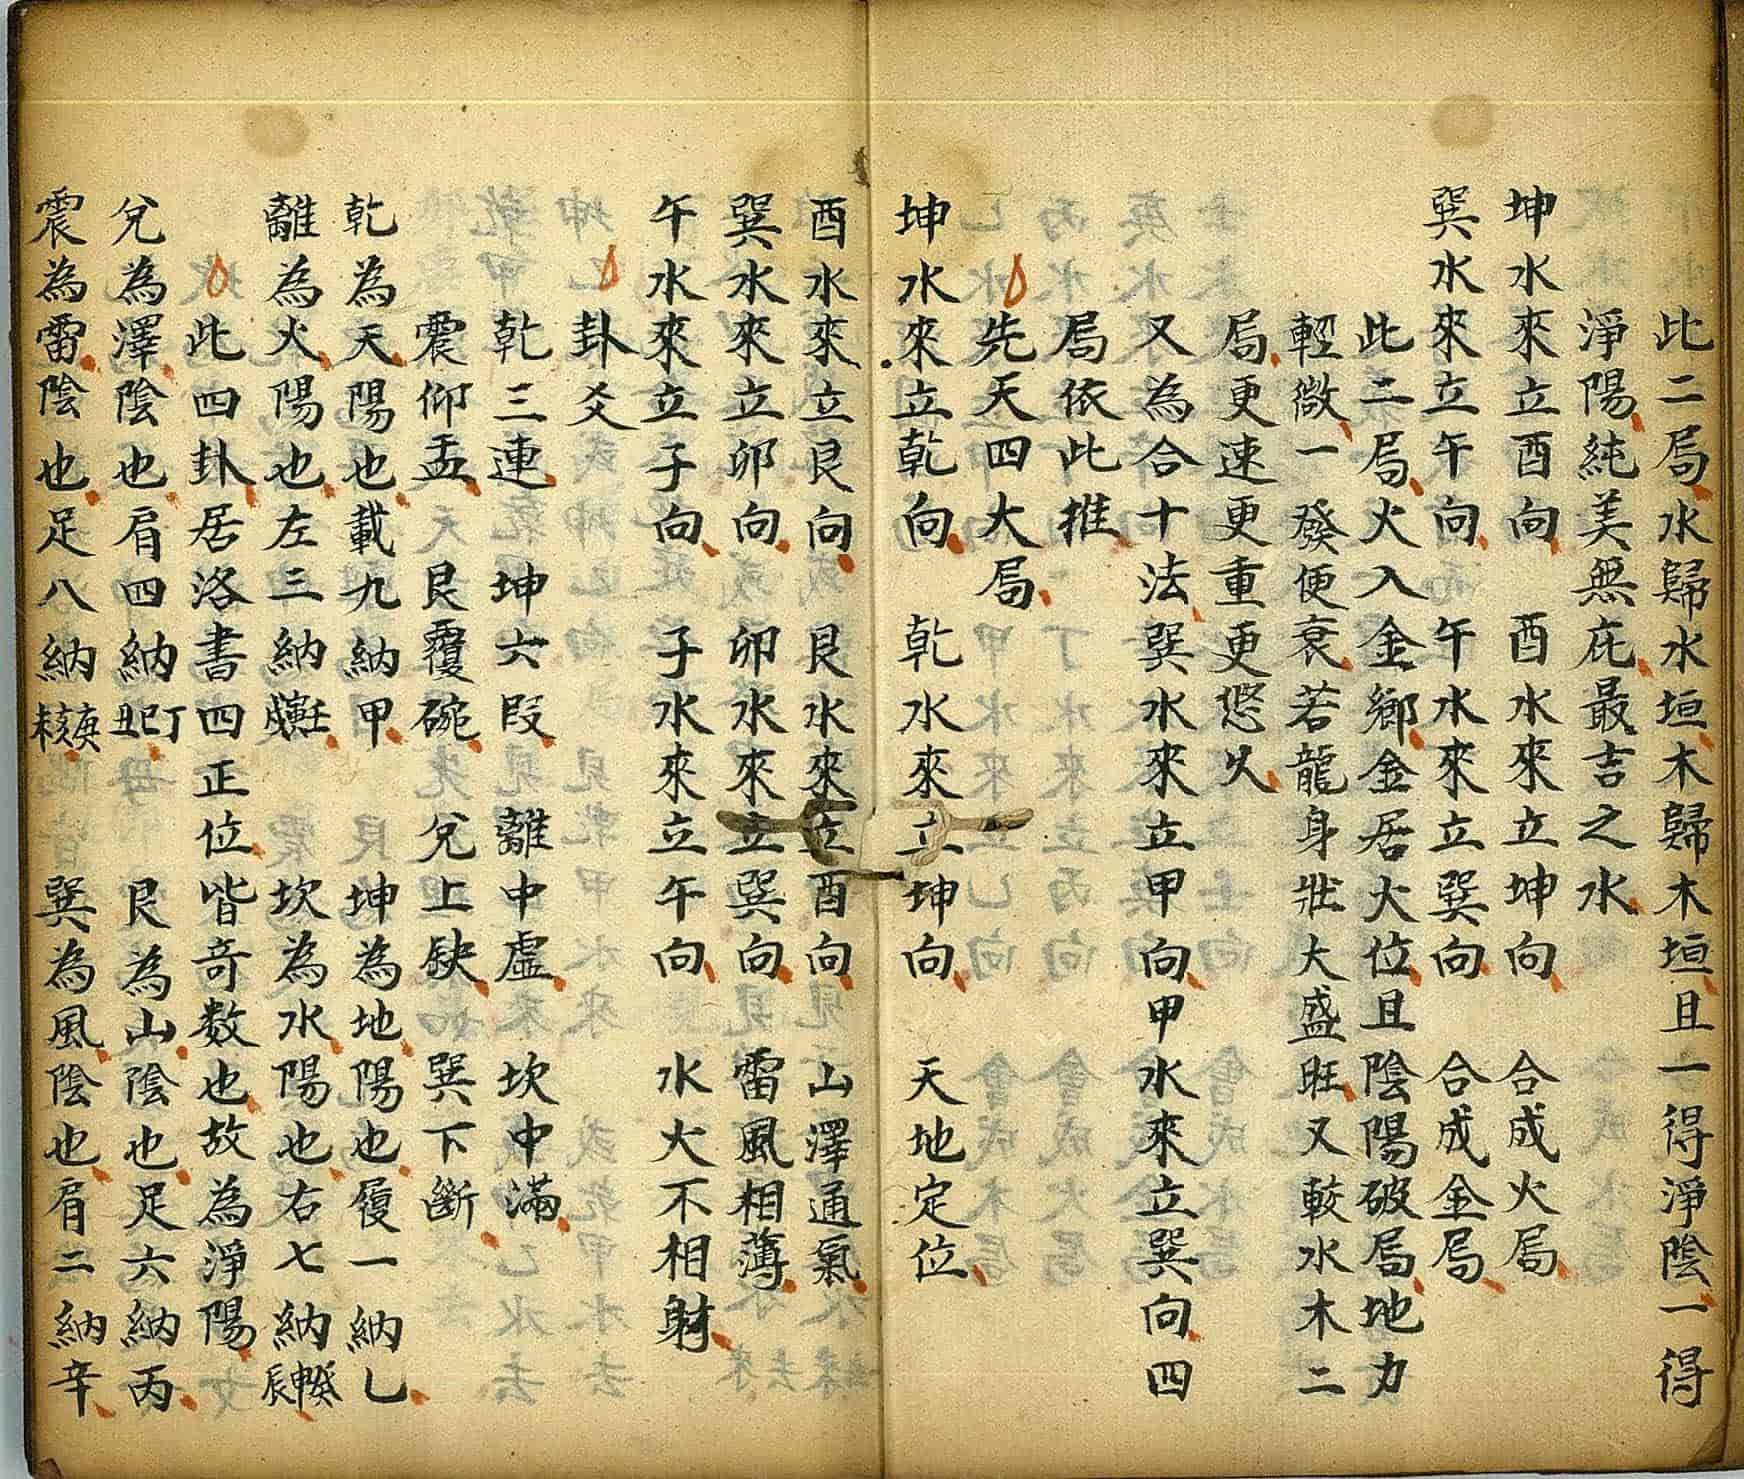 此二局水歸水垣木歸木垣且一得淨陰一得
淨陽純美無庇最吉之水
坤水來立酉向　酉水來立坤向　合成火局
巽水來立午向　午水來立巽向　合成金局
此二局火入金鄉金居火位且陰陽破局地力
輕微一發便衰若龍身壯大盛旺又較水木二
局更速更重更悠久
又為合十法巽水來立甲向甲水來立巽向四
局依此推
先天四大局
坤水來立乾向　乾水來立坤向　天地定位
酉水來立艮向　艮水來立酉向　山澤通氣
巽水來立卯向　卯水來立巽向　雷風相薄
午水來立子向　子水來立午向　水火不相射
卦爻
乾三連　坤六段　離中虛　坎中滿
震仰盂　艮覆碗　兌上缺　巽下斷
乾為天陽也載九納甲　坤為地陽也履一納乙
離為火陽也左三納壬寅戌　坎為水陽也右七納癸申辰
此四卦居洛書四正位皆奇数也故為淨陽
兌為澤陰也肩四納丁巳丑　艮為山陰也足六納丙
震為雷陰也足八納庚亥未　巽為風陰也肩二納辛